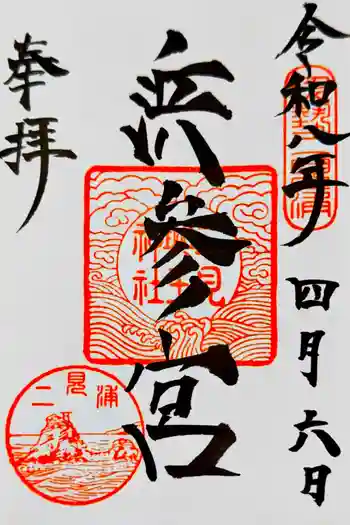 令和八年四月六日
浜參宮
奉拝
二見興玉神社
二見浦